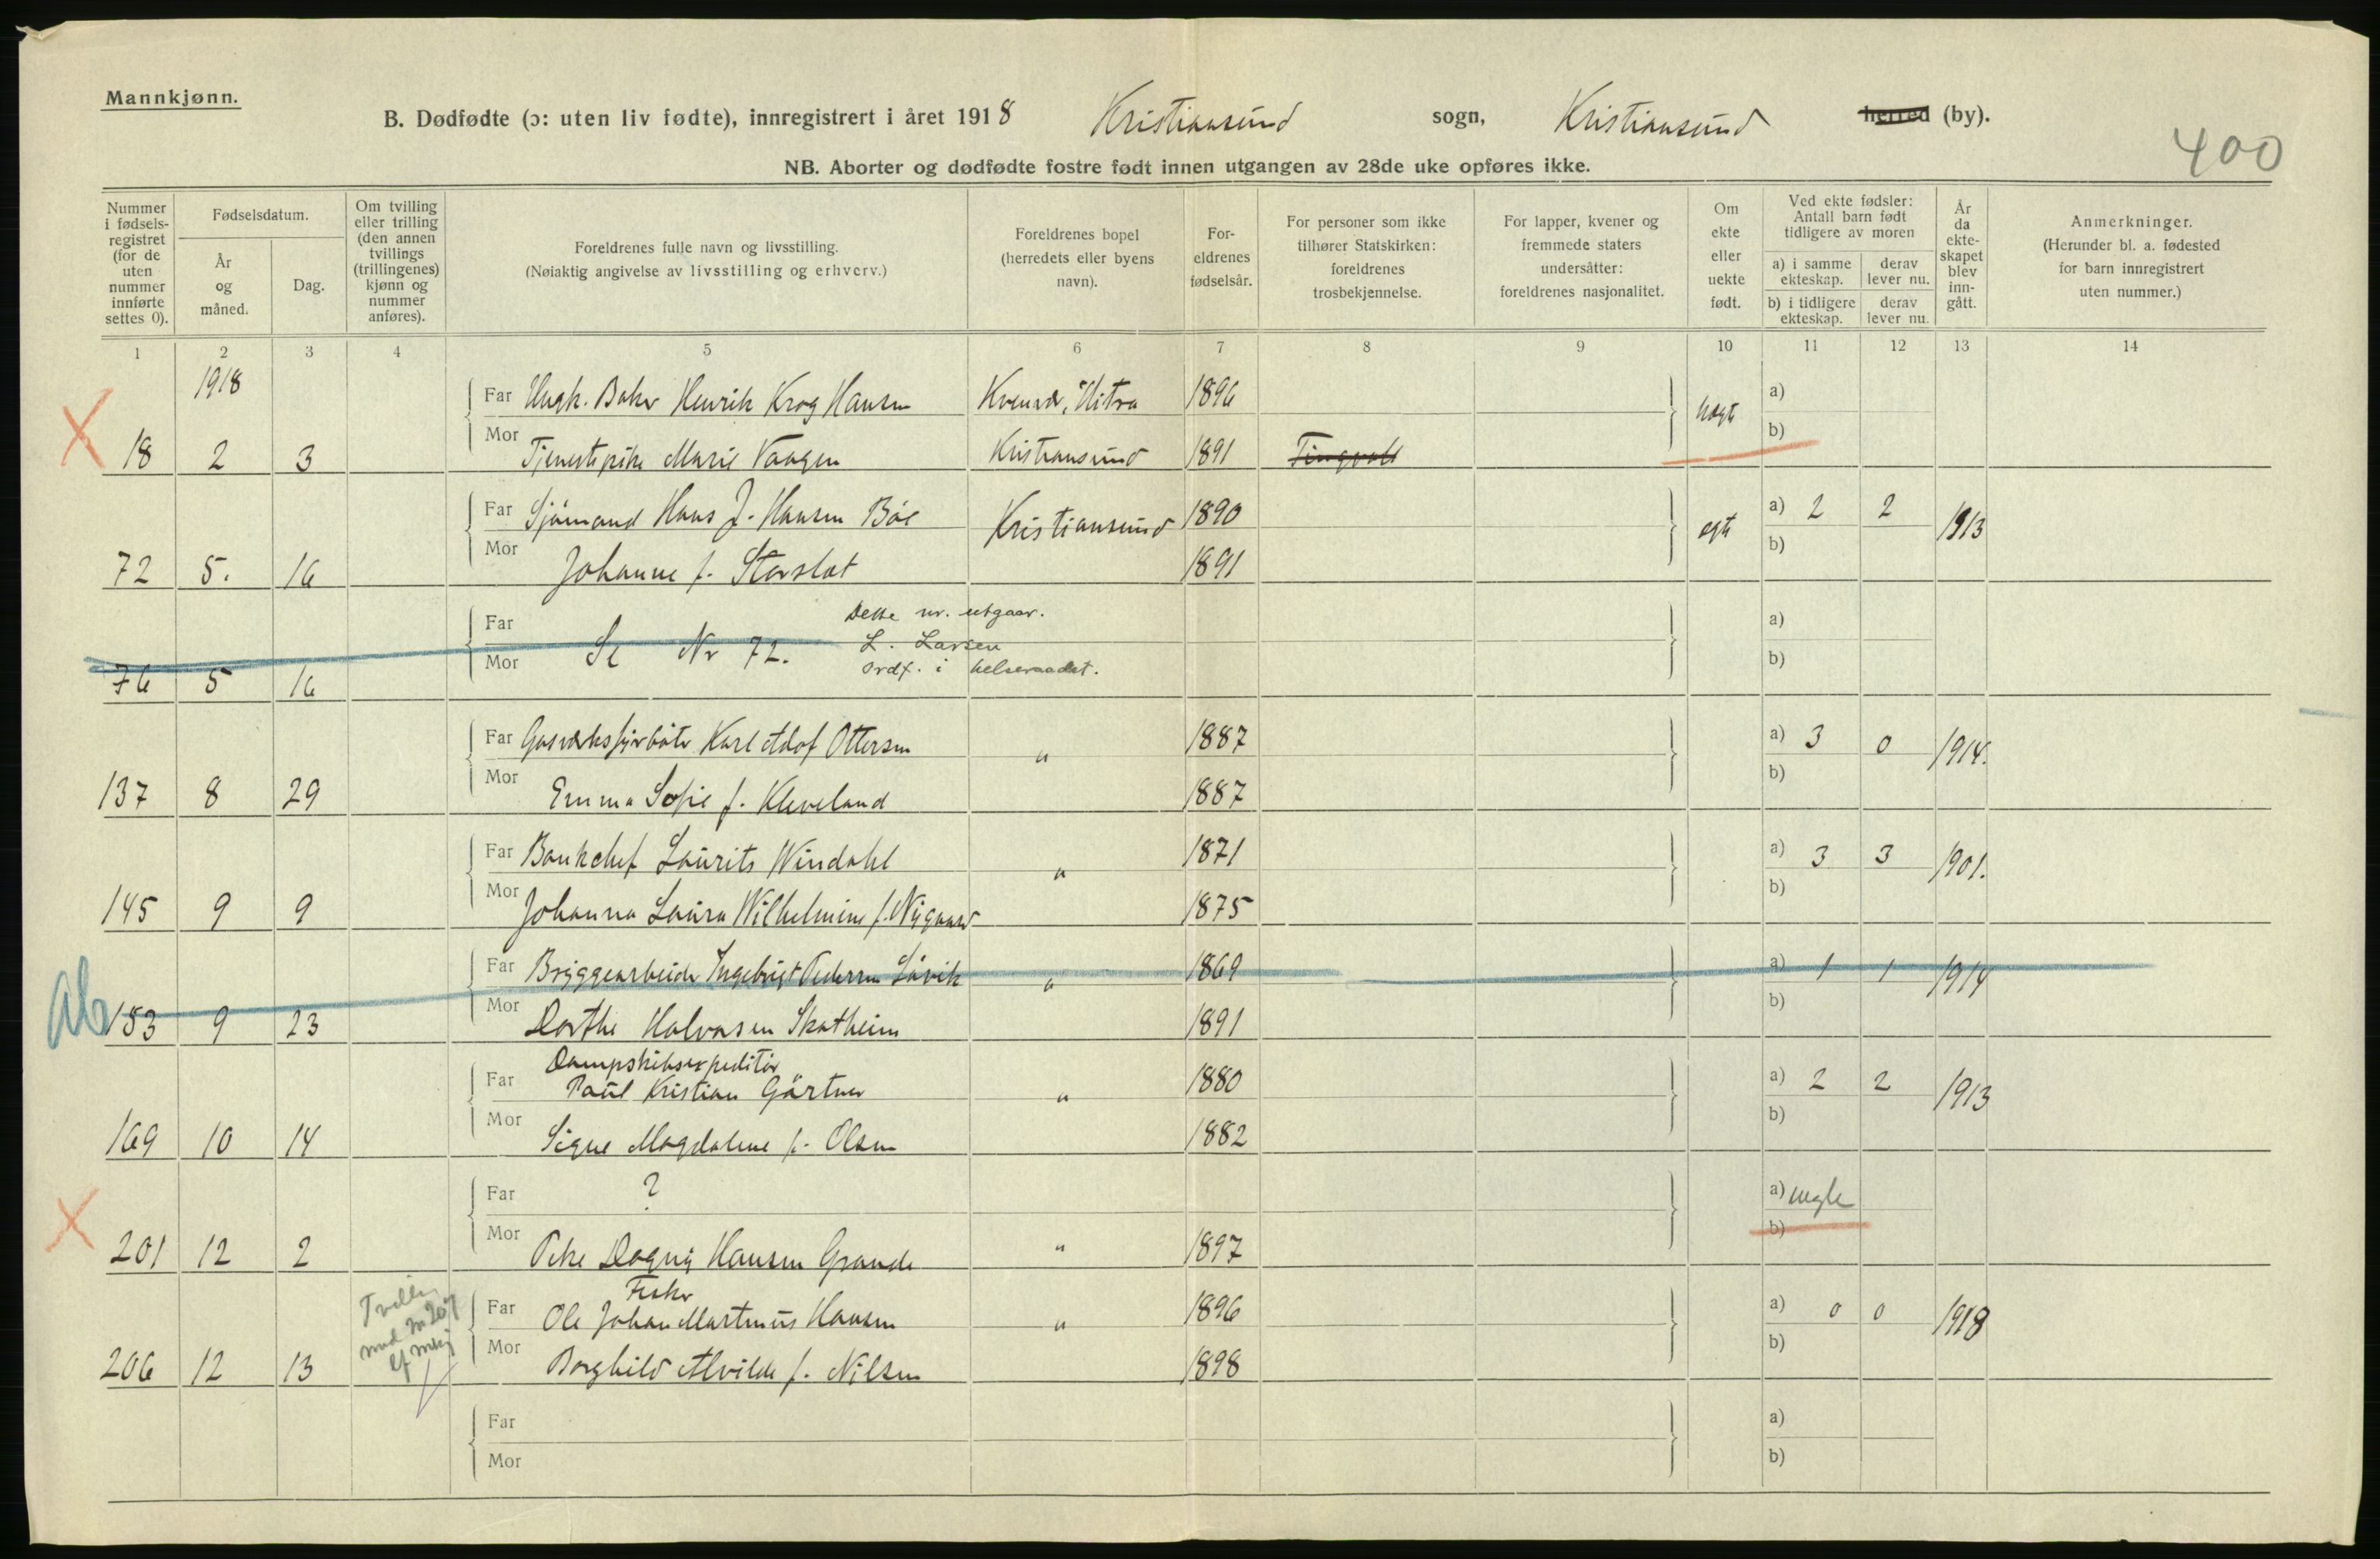 Mannkjønn.
B. Dødfødte (ɔ: uten liv fødte), innregistrert i året 1918 Kristiansund sogn, Kristiansund herred (by).
400
NB. Aborter og dødfødte fostre født innen utgangen av 28de uke opføres ikke.
Nummer i fødsels-registret (for de uten nummer innførte settes 0).
Fødselsdatum.
År og måned.
Dag.
Om tvilling eller trilling (den annen tvillings (trillingenes) kjønn og nummer anføres).
Foreldrenes fulle navn og livsstilling.
(Nøiaktig angivelse av livsstilling og erhverv.)
Foreldrenes bopel (herredets eller byens navn).
For-eldrenes fødselsår.
For personer som ikke tilhører Statskirken: foreldrenes trosbekjennelse.
For lapper, kvener og fremmede staters undersåtter: foreldrenes nasjonalitet.
Om ekte eller uekte født.
Ved ekte fødsler: Antall barn født tidligere av moren
a) i samme ekteskap. derav lever nu.
b) i tidligere ekteskap. derav lever nu.
År da ekte-skapet blev inn-gått.
Anmerkninger.
(Herunder bl. a. fødested for barn innregistrert uten nummer.)
1 2 3 4 5 6 7 8 9 10 11 12 13 14
1918
Far Ungk. Baker Henrik Krog Hansen Kvenvær, Hitra 1896 uegte a)
18 2 3 Mor Tjenestepike Marie Vaagen Kristiansund 1891 Tingvoll b)
Far Sjömand Hans J. Hansen Böe Kristiansund 1890 egte a) 2 2 1913
72 5. 16 Mor Johanne f. Storslot 1891 b)
Dette nr. utgaar.
Far a)
Se Nr 72. L. Larsen
76 5 16 Mor ordf. i helseraadet. b)
Far Gasverksfyrböter Karl Adof Ottersen " 1887 a) 3 0 1914.
137 8 29 Mor Emma Sofie f. Kleveland 1887 b)
Far Bankchef Laurits Windahl " 1871 a) 3 3 1901.
145 9 9 Mor Johanna Laura Wilhelmine f. Nygaard 1875 b)
Far Bryggearbeider Ingebrigt Pedersen Lövik " 1869 a) 1 1 1914
153 9 23 Mor Dorthe Halvorsen Skatheim 1891 b)
Dampskibsexpeditör
Far Paul Kristian Gärtner " 1880 a) 2 2 1913
169 10 14 Mor Signe Magdalene f. Olsen 1882 b)
Far ? a) uegte
201 12 2 Mor Pike Dagny Hansen Grande " 1897 b)
Fisker
Far Ole Johan Martinus Hansen " 1896 a) 0 0 1918
206 12 13 Mor Borghild Alvilde f. Nilsen 1898 b)
Far a)
Mor b)